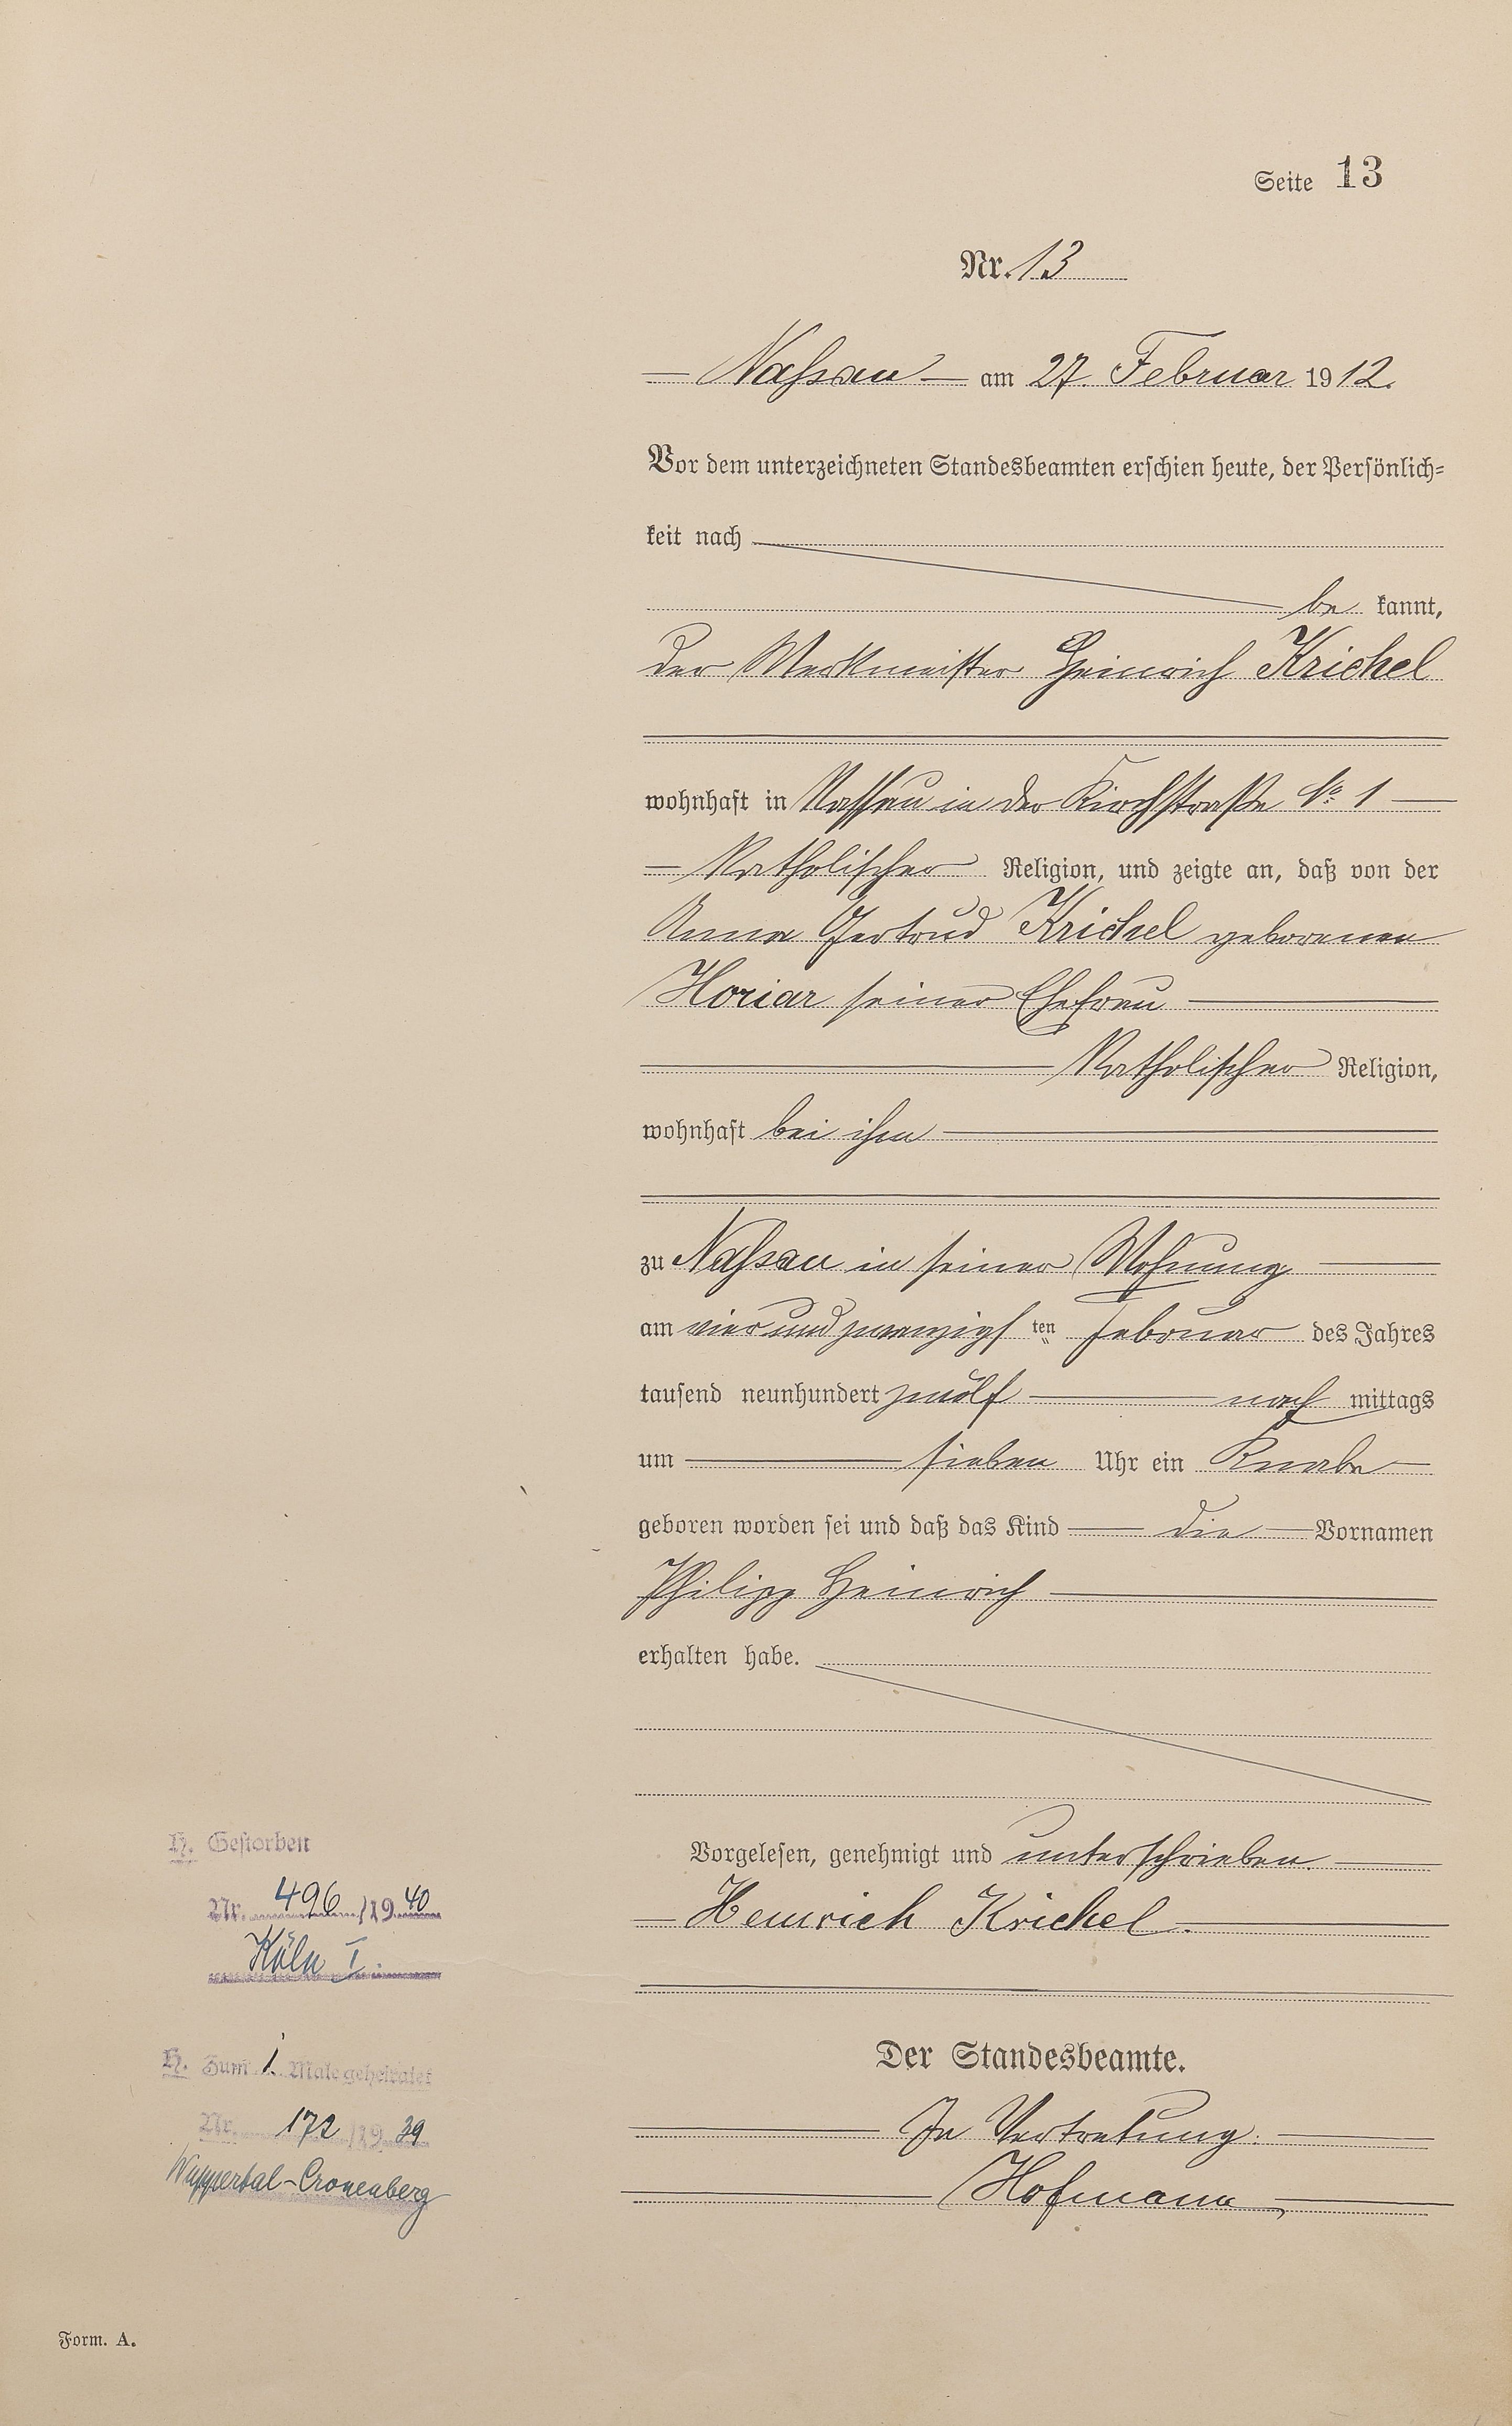 Seite 13
Nr. 13
Nassau am 27. Februar 1912.
Vor dem unterzeichneten Standesbeamten erschien heute, der Persönlich-
keit nach
be kannt,
der Werkmeister Heinrich Krichel
wohnhaft in Nassau in der Kirchstraße No 1
Katholischer Religion, und zeigte an, daß von der
Anna Gertrud Krichel geborenen
Horiar seiner Ehefrau
Katholischer Religion,
wohnhaft bei ihm
zu Nassau in seiner Wohnung
am vier und zwanzigsten Februar des Jahres
tausend neunhundert zwölf nach mittags
um sieben Uhr ein Knabe
geboren worden sei und daß das Kind die Vornamen
Philipp Heinrich
erhalten habe.
Vorgelesen, genehmigt und unterschrieben.
Heinrich Krichel.
Der Standesbeamte.
In Vertretung.
Hofmann
H. Gestorben
Nr. 496/1940
Köln I.
H. Zum 1. Male geheiratet
Nr. 172/1939
Wuppertal-Cronenberg
Form. A.